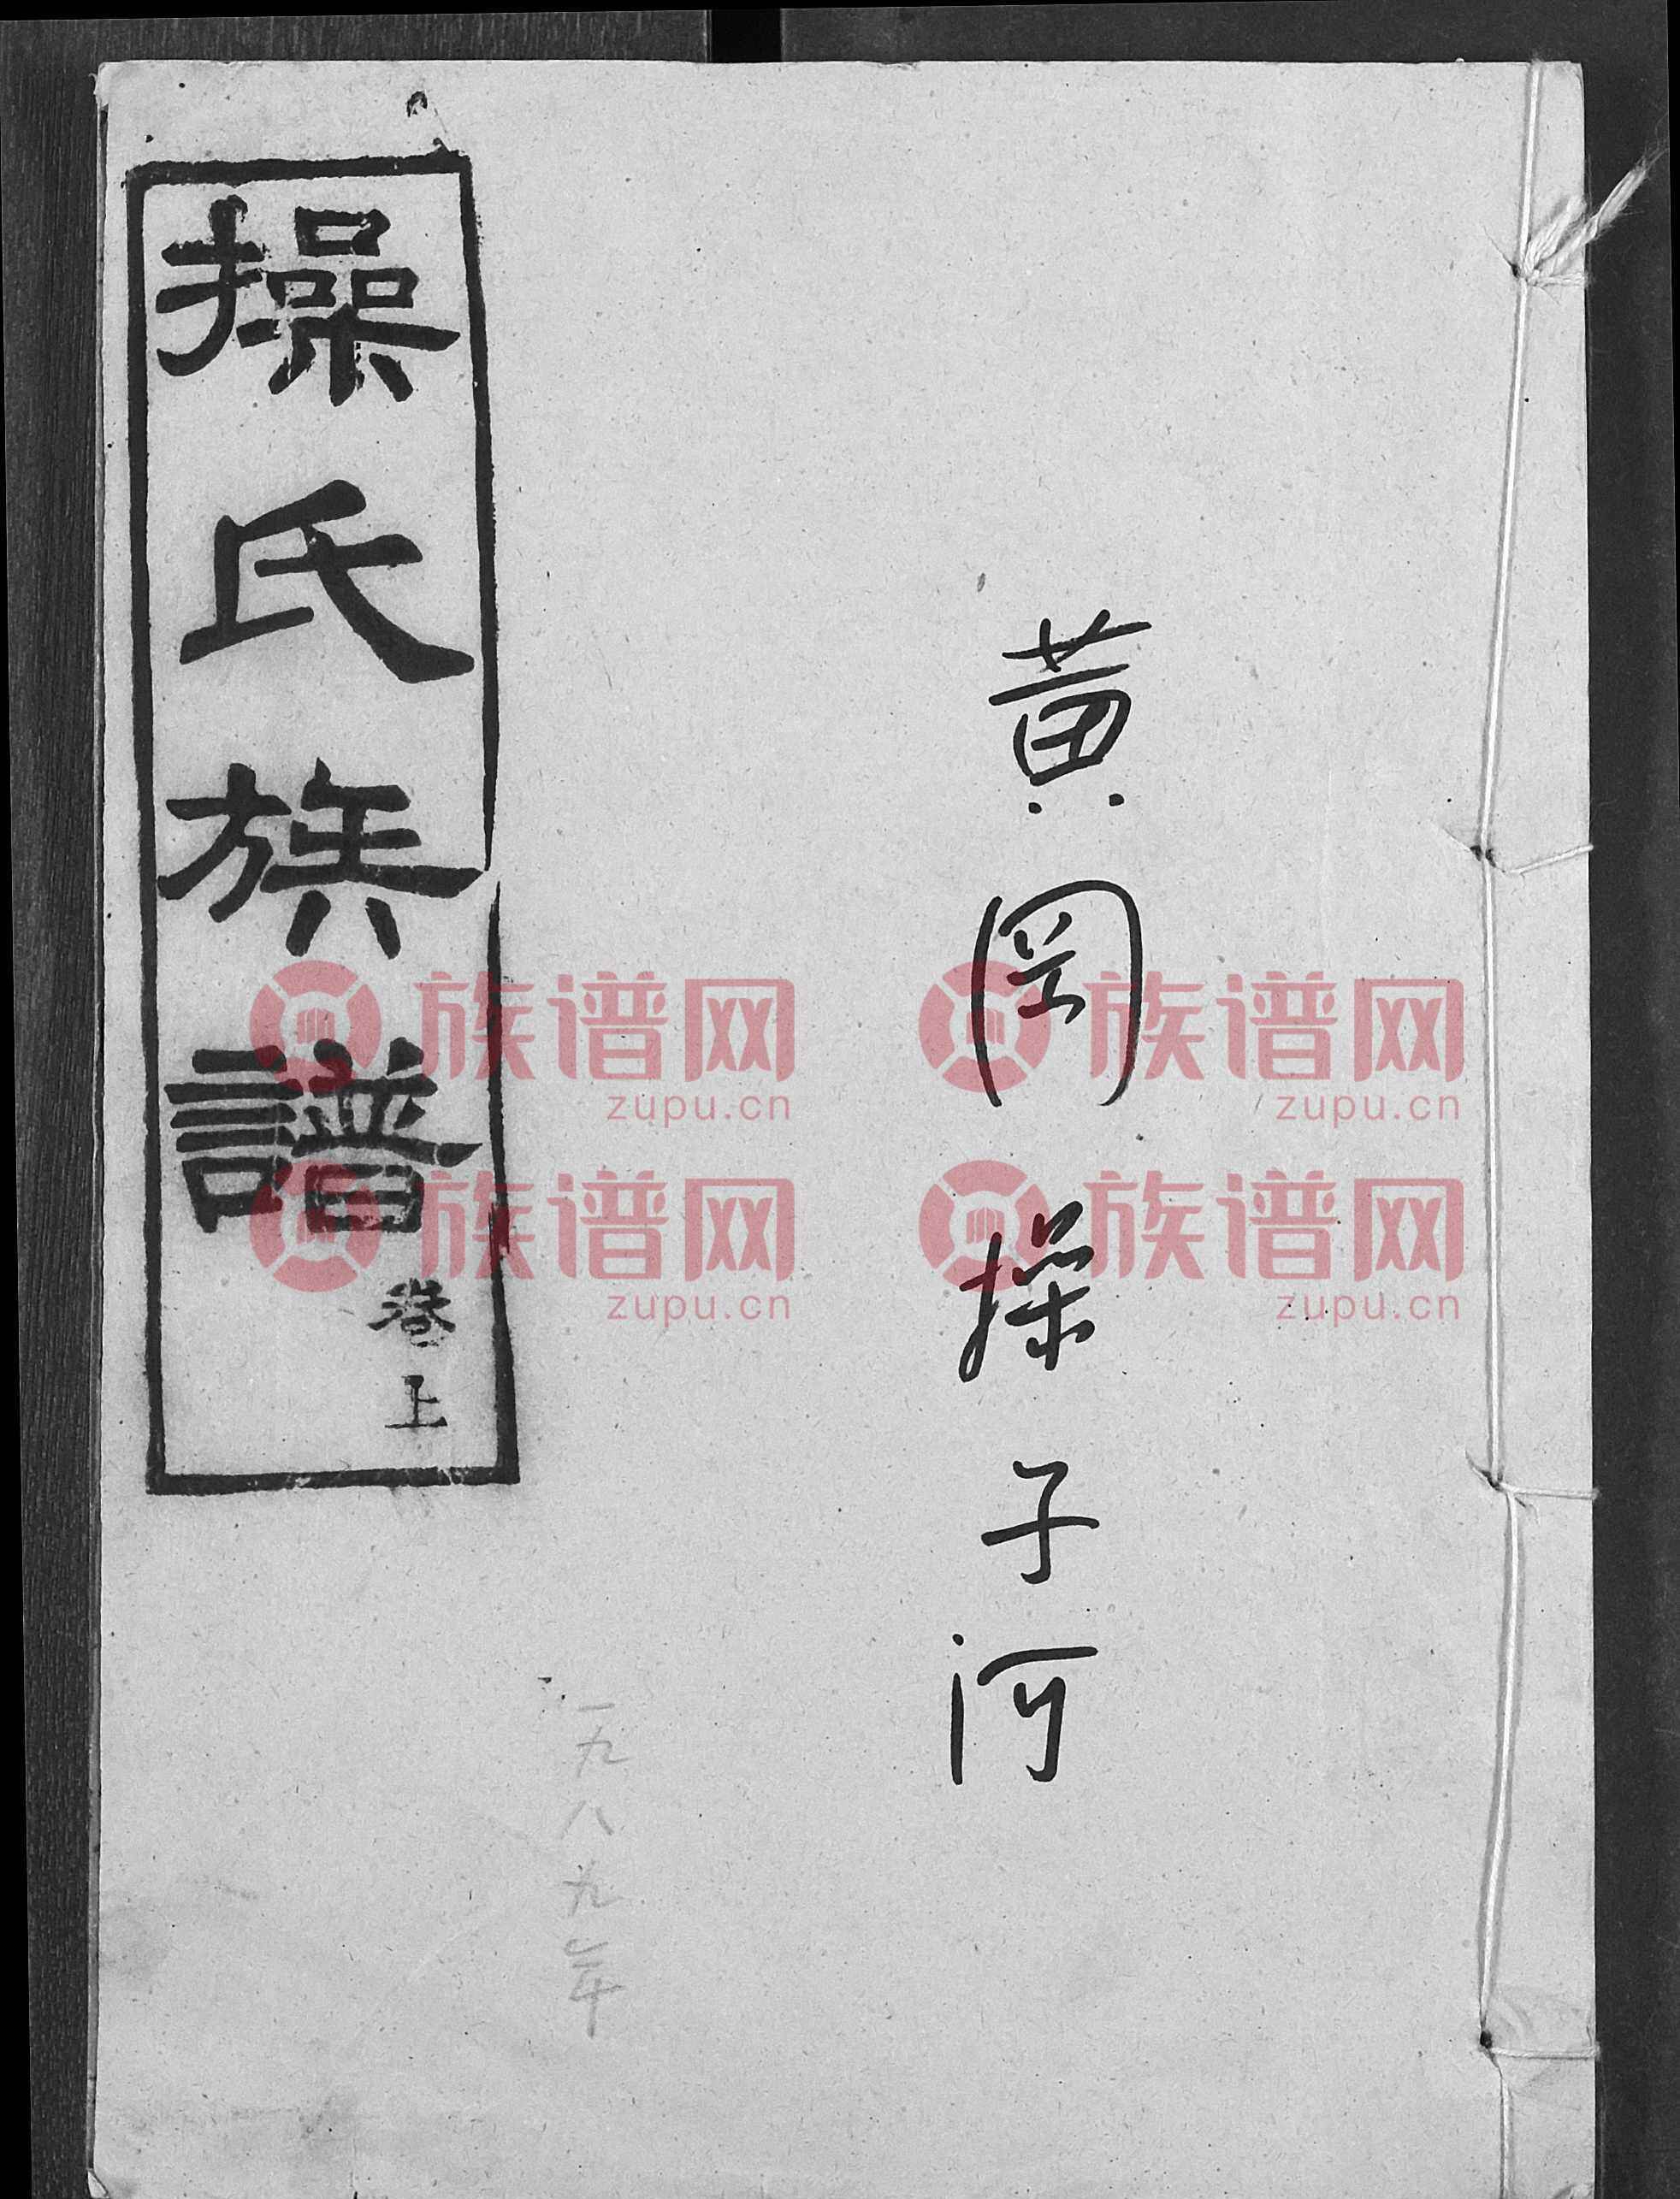 黄岡操子河
一九八九年
操氏族譜
卷上
族谱网
zupu.cn
族谱网
zupu.cn
族谱网
zupu.cn
族谱网
zupu.cn